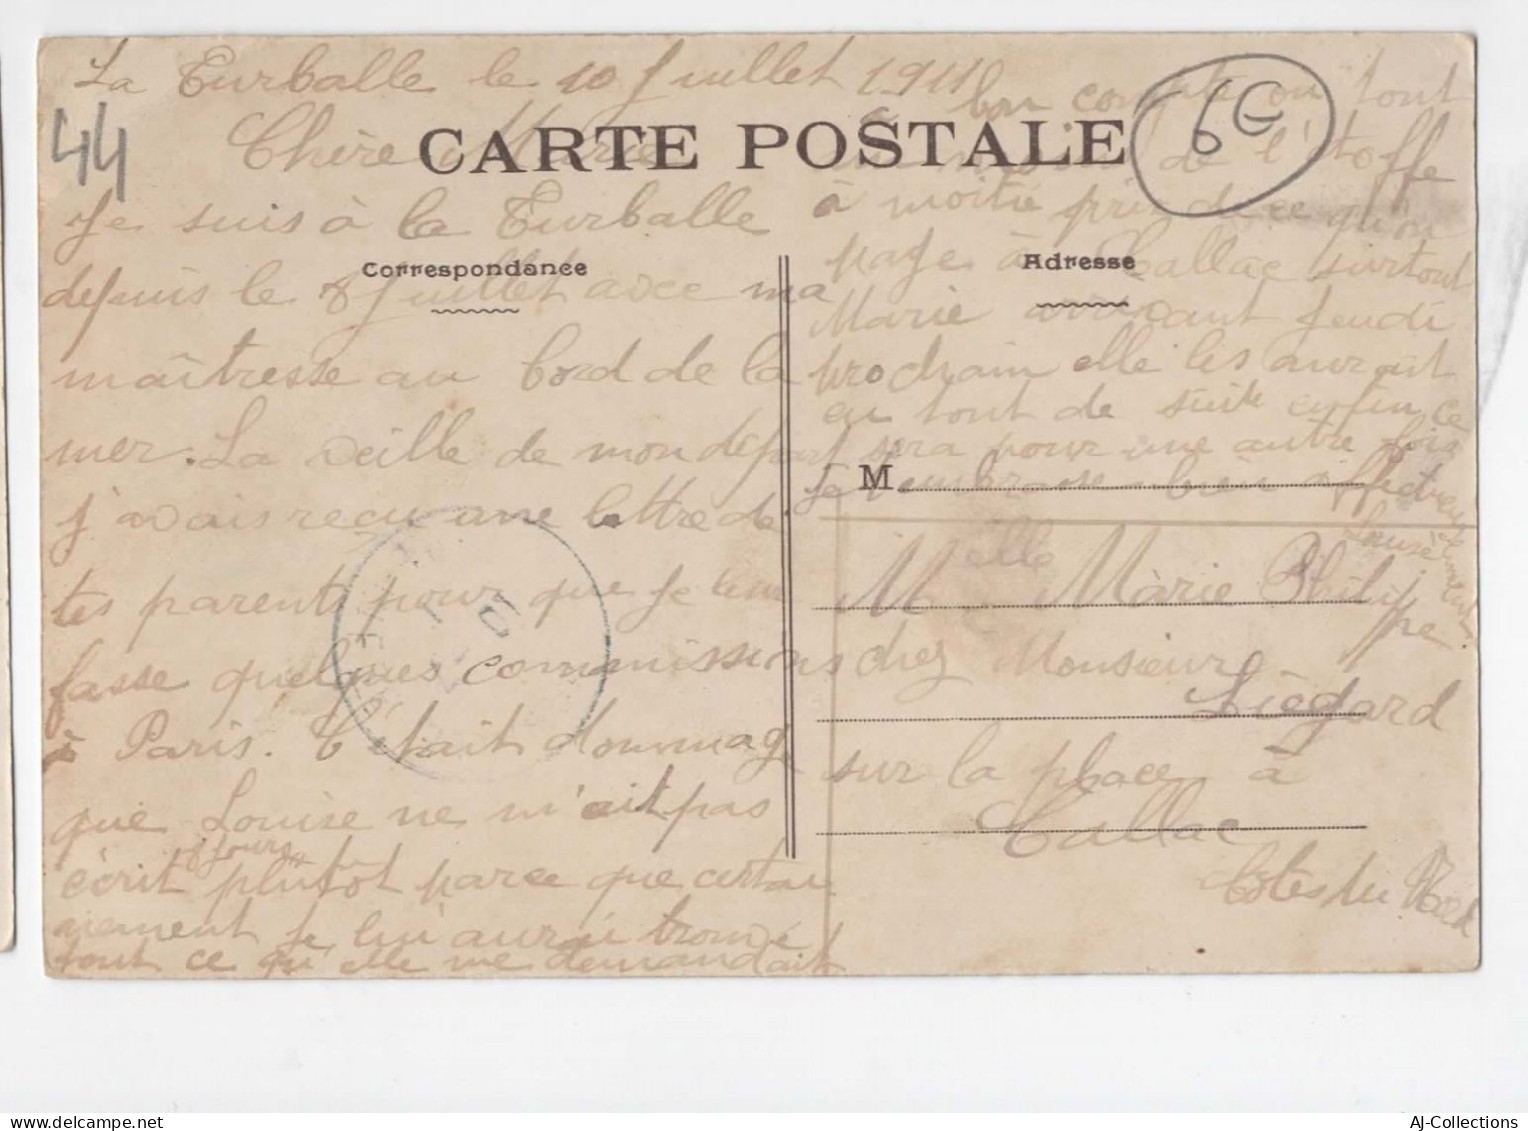 La Turballe le 10 Juillet 1911
44
Chère Marie
CARTE POSTALE
6€
Je suis à la Turballe
Correspondance
depuis le 8 Juillet avec ma
maîtresse au bord de la
mer. La veille de mon départ
j'avais reçu une lettre de
tes parents pour que je leur
fasse quelques commissions
à Paris. C'était dommage
que Louise ne m'ait pas
8 jours
écrit plutôt parce que certai
nement je lui aurai trouvé
tout ce qu'elle me demandait
à bon compte ou tout
de l'étoffe
à moitié prix de ce qu'on
paye à Callac surtout
Adresse
Marie arrivant Jeudi
prochain elle les aurait
eu tout de suite enfin ce
sera pour une autre fois
M
Je t'embrasse bien affectueusement
Louise
Melle Marie Philippe
chez Monsieur
Liégard
sur la place à
Callac
Côtes du Nord
AJ-Collections